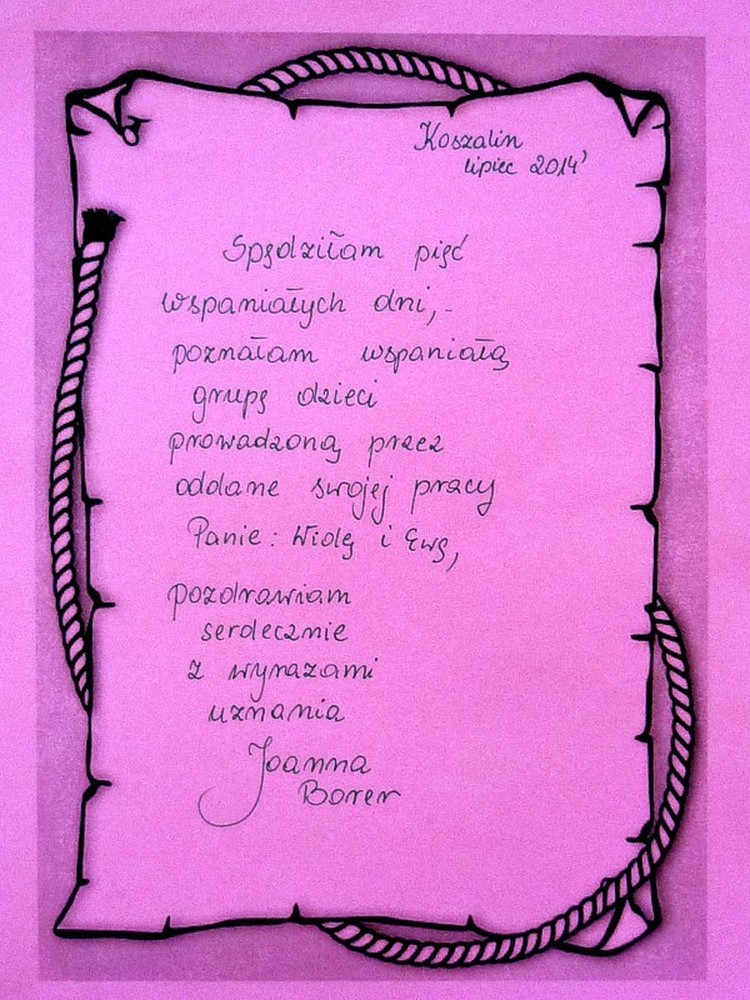 Koszalin
lipiec 2014'
Spędziłam pięć
wspaniałych dni,-
poznałam wspaniałą
grupę dzieci
prowadzoną przez
oddane swojej pracy
Panie: Wiolę i Ewę,
pozdrawiam
serdecznie
z wyrazami
uznania
Joanna
Borer